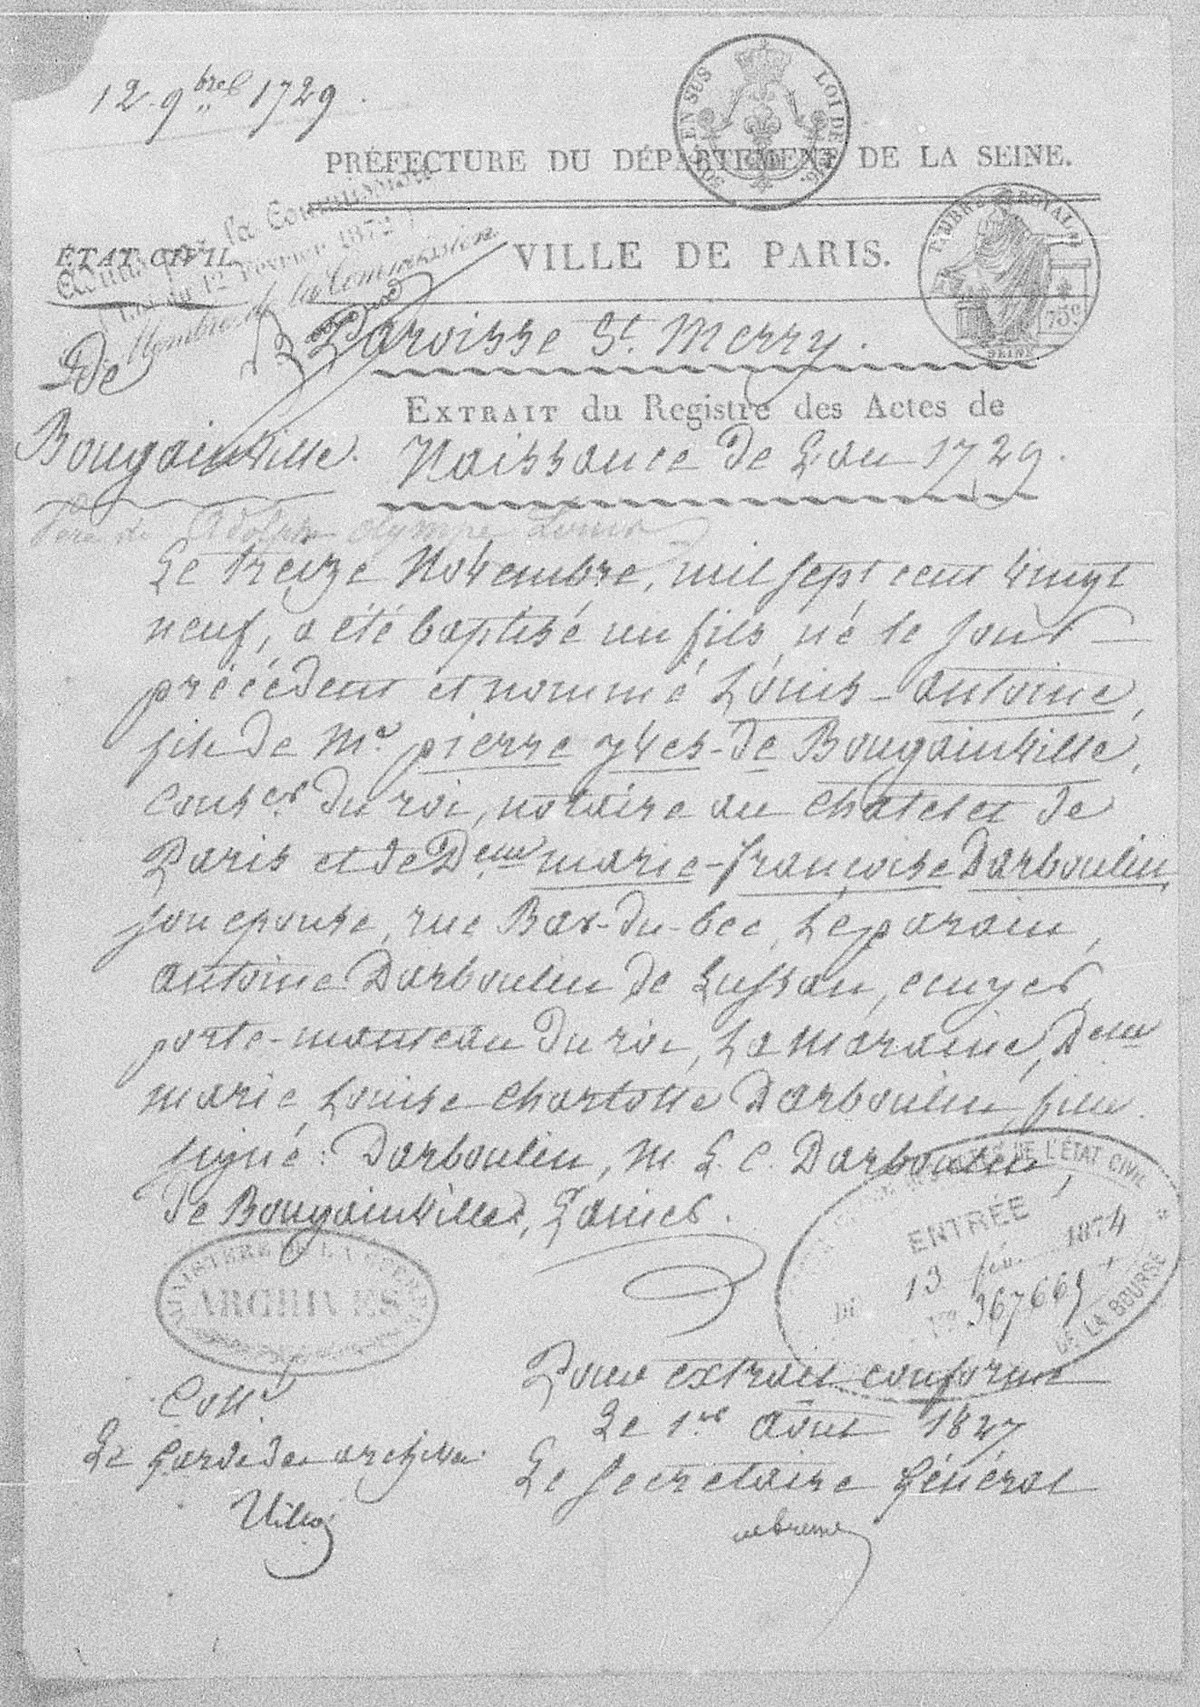 12. 9bres 1729.
EN SUS
LOI DE
PRÉFECTURE DU DÉPARTEMENT DE LA SEINE.
TIMBRE ROYAL
75c
SEINE
par la Commission
12 Février 1872
Membre de la Commission
ÉTAT CIVIL
VILLE DE PARIS.
Paroisse St. Merry.
De
Bougainville.
EXTRAIT du Registre des Actes de
Naissance de L'an 1729.
Père de Adolphe Olympe Louis
Le treize Novembre, mil sept cent vingt
neuf, a été baptisé un fils, né le jour
précédent et nommé Louis-antoine,
fils de Me pierre yves-de Bougainville,
Conser du roi, notaire au chatelet de
Paris et de Delle marie-françoise Darboulin,
son epouse, rue Bar-du-bec, Le parain,
antoine Darboulin de Lussan, ecuyer,
porte-manteau du roi, La maraine, Delle
marie Louise Charlotte Darboulin, fille.
signé: Darboulin, M. L. C. Darboulin,
de Bougainville,
DE L'ÉTAT CIVIL
ENTRÉE
13 fév. 1874
No 367665
DE LA BOURSE
MINISTÈRE DE LA GUERRE
ARCHIVES
Pour extrait conforme
Le 1er Août 1827
Le Secrétaire Général
Coll
Le Garde des archives